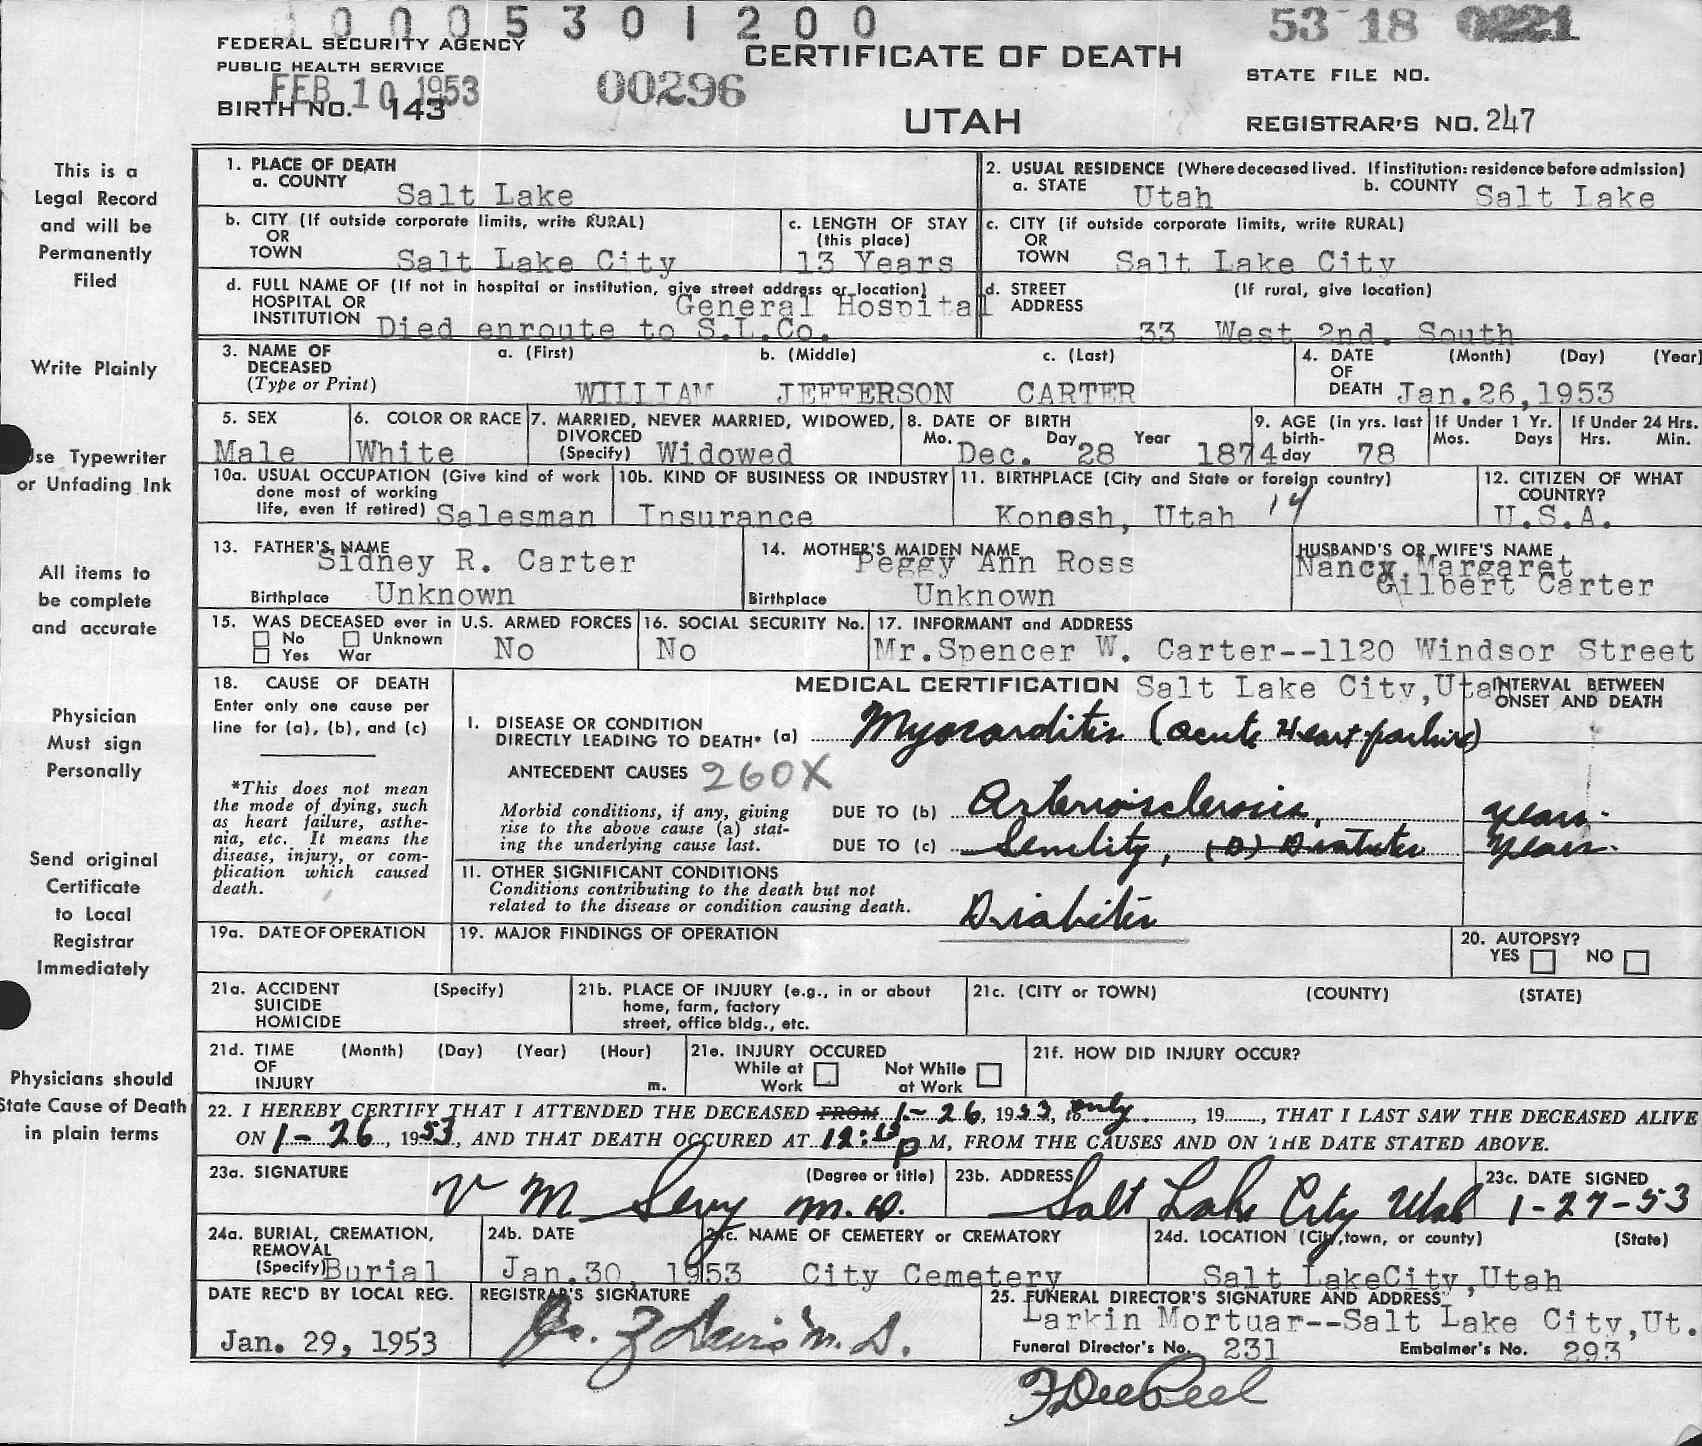 0 0 0 5 3 0 1 2 0 0
53 18 0221
FEDERAL SECURITY AGENCY
PUBLIC HEALTH SERVICE
FEB 10 1953
BIRTH NO. 143
00296
CERTIFICATE OF DEATH
UTAH
STATE FILE NO.
REGISTRAR'S NO. 247
This is a
Legal Record
and will be
Permanently
Filed
Write Plainly
Use Typewriter
or Unfading Ink
All items to
be complete
and accurate
Physician
Must sign
Personally
Send original
Certificate
to Local
Registrar
Immediately
Physicians should
State Cause of Death
in plain terms
1. PLACE OF DEATH
a. COUNTY Salt Lake
2. USUAL RESIDENCE (Where deceased lived. If institution: residence before admission)
a. STATE Utah b. COUNTY Salt Lake
b. CITY (If outside corporate limits, write RURAL)
OR
TOWN Salt Lake City
c. LENGTH OF STAY
(this place)
13 Years
c. CITY (if outside corporate limits, write RURAL)
OR
TOWN Salt Lake City
d. FULL NAME OF (If not in hospital or institution, give street address or location)
HOSPITAL OR General Hospital
INSTITUTION Died enroute to S.L.Co.
d. STREET (If rural, give location)
ADDRESS
33 West 2nd. South
3. NAME OF a. (First) b. (Middle) c. (Last)
DECEASED
(Type or Print) WILLIAM JEFFERSON CARTER
4. DATE (Month) (Day) (Year)
OF
DEATH Jan.26,1953
5. SEX
Male
6. COLOR OR RACE
White
7. MARRIED, NEVER MARRIED, WIDOWED,
DIVORCED
(Specify) Widowed
8. DATE OF BIRTH
Mo. Day Year
Dec. 28 1874
9. AGE (in yrs. last
birth-
day 78
If Under 1 Yr.
Mos. Days
If Under 24 Hrs.
Hrs. Min.
10a. USUAL OCCUPATION (Give kind of work
done most of working
life, even if retired) Salesman
10b. KIND OF BUSINESS OR INDUSTRY
Insurance
11. BIRTHPLACE (City and State or foreign country)
Konosh, Utah 14
12. CITIZEN OF WHAT
COUNTRY?
U.S.A.
13. FATHER'S NAME
Sidney R. Carter
Birthplace Unknown
14. MOTHER'S MAIDEN NAME
Peggy Ann Ross
Birthplace Unknown
HUSBAND'S OR WIFE'S NAME
Nancy Margaret
Gilbert Carter
15. WAS DECEASED ever in U.S. ARMED FORCES
No Unknown
Yes War No
16. SOCIAL SECURITY No.
No
17. INFORMANT and ADDRESS
Mr.Spencer W. Carter--1120 Windsor Street
Salt Lake City,Utah
18. CAUSE OF DEATH
Enter only one cause per
line for (a), (b), and (c)
*This does not mean
the mode of dying, such
as heart failure, asthe-
nia, etc. It means the
disease, injury, or com-
plication which caused
death.
MEDICAL CERTIFICATION
INTERVAL BETWEEN
ONSET AND DEATH
I. DISEASE OR CONDITION
DIRECTLY LEADING TO DEATH* (a) Myocarditis (acute Heart failure)
ANTECEDENT CAUSES 260X
Morbid conditions, if any, giving
rise to the above cause (a) stat-
ing the underlying cause last.
DUE TO (b) Arteriosclerosis, years.
DUE TO (c) Senility, (D) Diabetes years.
II. OTHER SIGNIFICANT CONDITIONS
Conditions contributing to the death but not
related to the disease or condition causing death. Diabetes
19a. DATE OF OPERATION
19. MAJOR FINDINGS OF OPERATION
20. AUTOPSY?
YES NO
21a. ACCIDENT (Specify)
SUICIDE
HOMICIDE
21b. PLACE OF INJURY (e.g., in or about
home, farm, factory
street, office bldg., etc.
21c. (CITY or TOWN) (COUNTY) (STATE)
21d. TIME (Month) (Day) (Year) (Hour)
OF
INJURY m.
21e. INJURY OCCURED
While at Not While
Work at Work
21f. HOW DID INJURY OCCUR?
22. I HEREBY CERTIFY THAT I ATTENDED THE DECEASED FROM 1-26, 1953, to only, 19....., THAT I LAST SAW THE DECEASED ALIVE
ON 1-26, 1953, AND THAT DEATH OCCURED AT 12:15 P M, FROM THE CAUSES AND ON THE DATE STATED ABOVE.
23a. SIGNATURE (Degree or title)
V M Sevy M.D.
23b. ADDRESS
Salt Lake City Utah
23c. DATE SIGNED
1-27-53
24a. BURIAL, CREMATION,
REMOVAL
(Specify) Burial
24b. DATE
Jan.30, 1953
24c. NAME OF CEMETERY or CREMATORY
City Cemetery
24d. LOCATION (City, town, or county) (State)
Salt LakeCity,Utah
DATE REC'D BY LOCAL REG.
Jan. 29, 1953
REGISTRAR'S SIGNATURE
Davis M.D.
25. FUNERAL DIRECTOR'S SIGNATURE AND ADDRESS
Larkin Mortuar--Salt Lake City,Ut.
Funeral Director's No. 231 Embalmer's No. 293
F Dee Peel